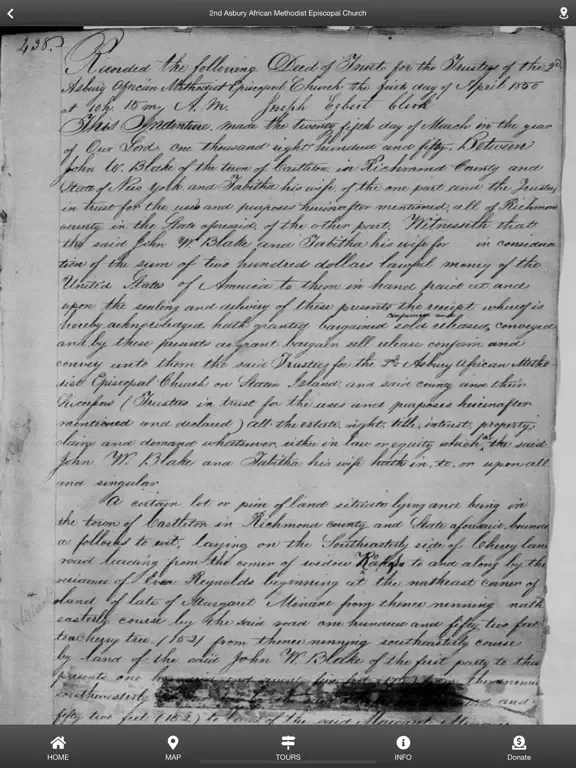 2nd Asbury African Methodist Episcopal Church
438.
Recorded the following Deed of Trust for the Trustees of the 2d
Asbury African Methodist Episcopal Church the first day of April 1850
at 10h. 15m A.M. Joseph Egbert Clerk
This Indenture, made the twenty fifth day of March in the year
of Our Lord one thousand eight hundred and fifty, Between
John W. Blake of the town of Castleton in Richmond County and
State of New York and Tabitha his wife of the one part and the Trustees
in trust for the uses and purposes hereinafter mentioned, all of Richmond
county in the State aforesaid, of the other part. Witnesseth that
the said John W Blake and Tabitha his wife for in considera
tion of the sum of two hundred dollars lawful money of the
United States of America to them in hand paid at and
upon the sealing and delivery of these presents the receipt whereof is
hereby acknowledged, hath granted bargained sold released, conveyed
and by these presents do grant bargain sell release confirm and
convey unto them the said Trustees for the 2d Asbury African Metho-
dist Episcopal Church on Staten Island and said county and their
Successors (Trustees in trust for the uses and purposes hereinafter
mentioned and declared) all the estate, right, title, interest, property,
claim and demand whatsoever, either in law or equity which the said
John W. Blake and Tabitha his wife hath in, to, or upon all
and singular
A certain lot or piece of land situate lying and being in
the town of Castleton in Richmond county and State aforesaid, bounded
as follows to wit, laying on the Southeasterly side of Cherry lane
road leading from the corner of widow to and along by the
residence of Reynolds beginning at the northeast corner of
land of late of Margaret from thence running north
easterly course by the said road one hundred and fifty two feet
to a cherry tree, (152) from thence running southeasterly course
by land of the said John W. Blake of the first party to these
presents one
southwesterly and
fifty two feet (152) to land of the said Margaret
HOME
MAP
TOURS
INFO
Donate